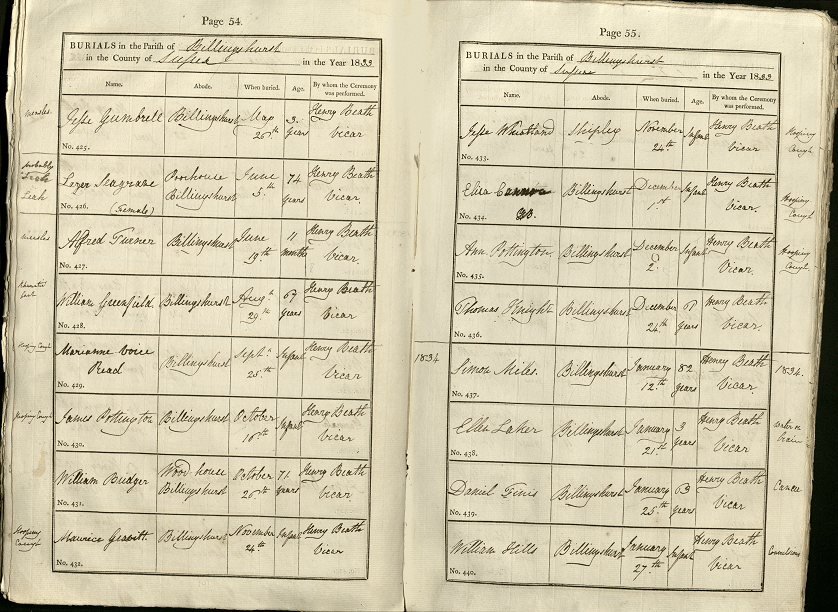 Page 54.
BURIALS in the Parish of Billingshurst
in the County of Sussex in the Year 1833
Name. Abode. When buried. Age. By whom the Ceremony was performed.
measles
Jesse Gumbrell Billingshurst May 26th 3 years Henry Beath Vicar
No. 425.
Probably
Poorhouse Billingshurst June 5th 74 years Henry Beath Vicar
No. 426. (Female)
measles
Alfred Turner Billingshurst June 19th 11 months Henry Beath Vicar
No. 427.
William Greenfield. Billingshurst Augt 29th 67 years Henry Beath Vicar
No. 428.
Hooping Cough
Marianne Voice Read Billingshurst Septr 25th Infant Henry Beath Vicar
No. 429.
Hooping Cough
James Pottington Billingshurst October 16th Infant Henry Beath Vicar
No. 430.
William Budger Wood house Billingshurst October 26th 71 years Henry Beath Vicar
No. 431.
Hooping Cough
Maurice Billingshurst November 24th Infant Henry Beath Vicar
No. 432.
Page 55.
BURIALS in the Parish of Billingshurst
in the County of Sussex in the Year 1833
Name. Abode. When buried. Age. By whom the Ceremony was performed.
Jesse Shipley November 24th Infant Henry Beath Vicar
Hooping Cough
No. 433.
Eliza Billingshurst December 1st Infant Henry Beath Vicar.
Hooping Cough
No. 434.
Ann Pottington. Billingshurst December 2 Infant Henry Beath Vicar.
Hooping Cough
No. 435.
Thomas Knight Billingshurst December 24th years Henry Beath Vicar.
No. 436.
1834
Simon Miles. Billingshurst January 12th 82 years Henry Beath Vicar.
1834.
No. 437.
Ellen Laker Billingshurst January 21st 3 years Henry Beath Vicar
Water on brain
No. 438.
Daniel Billingshurst January 25th 63 years Henry Beath Vicar
Cancer
No. 439.
William Hills Billingshurst January 27th Infant Henry Beath Vicar
Convulsions
No. 440.